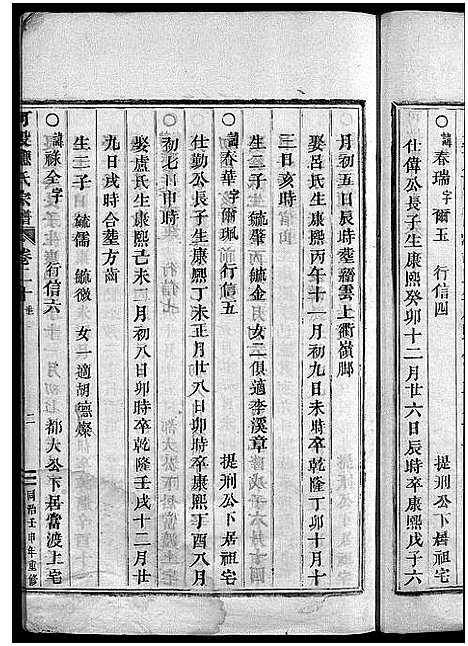 ○諱春瑞字爾玉 行信四 提刑公下居祖宅
仕偉公長子生康熙癸卯十二月廿六日辰時卒康熙戊子六
月初五日辰時葬縉雲上衢嶺脚
娶呂氏生康熙丙午十一月初九日未時卒乾隆丁卯十月十
三日亥時
生二子 毓肇 毓金 女二俱適李溪章
○諱春華字爾珮 行信五 提刑公下居祖宅
仕勤公長子生康熙丁未正月廿八日卯時卒康熙丁酉八月
初七日申時
娶盧氏生康熙己未二月初八日卯時卒乾隆壬戌十二月廿
九日戌時合葬方崗
生二子 毓儒 毓徵 女一適胡德燦
○諱祿全字 行信六 都大公下居當渡上宅
氏宗譜 卷二十 二 同治壬申年重修